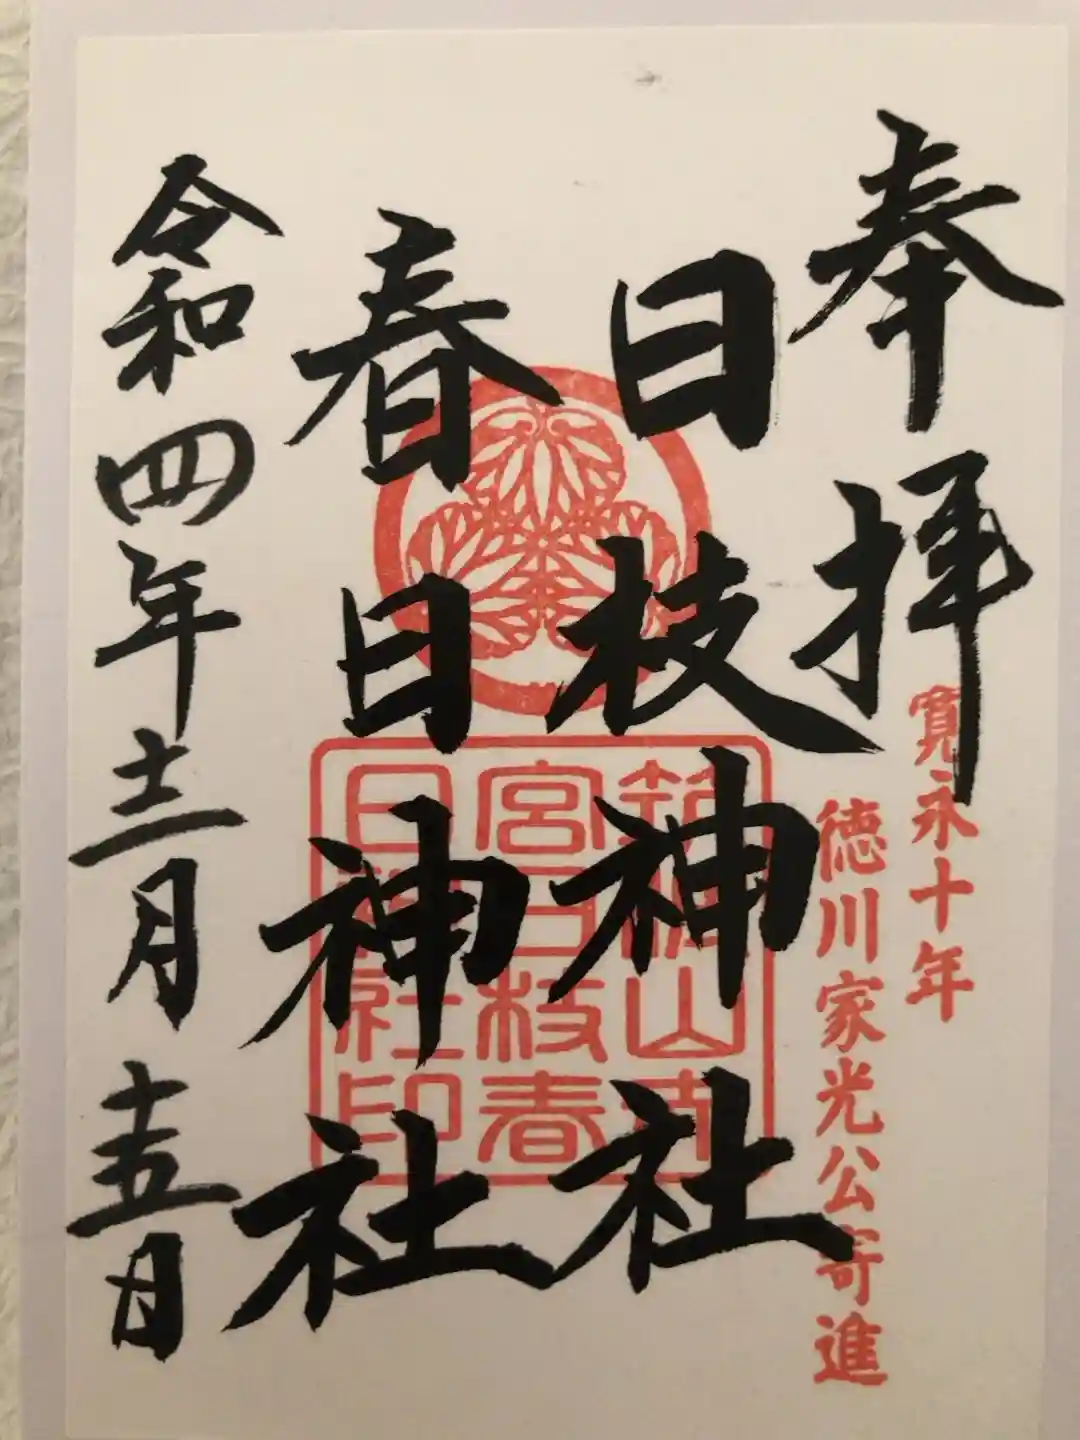 奉拝
寛永十年
徳川家光公寄進
日枝神社
春日神社
筑波山
宮日枝春
日神社印
令和四年十二月十五日